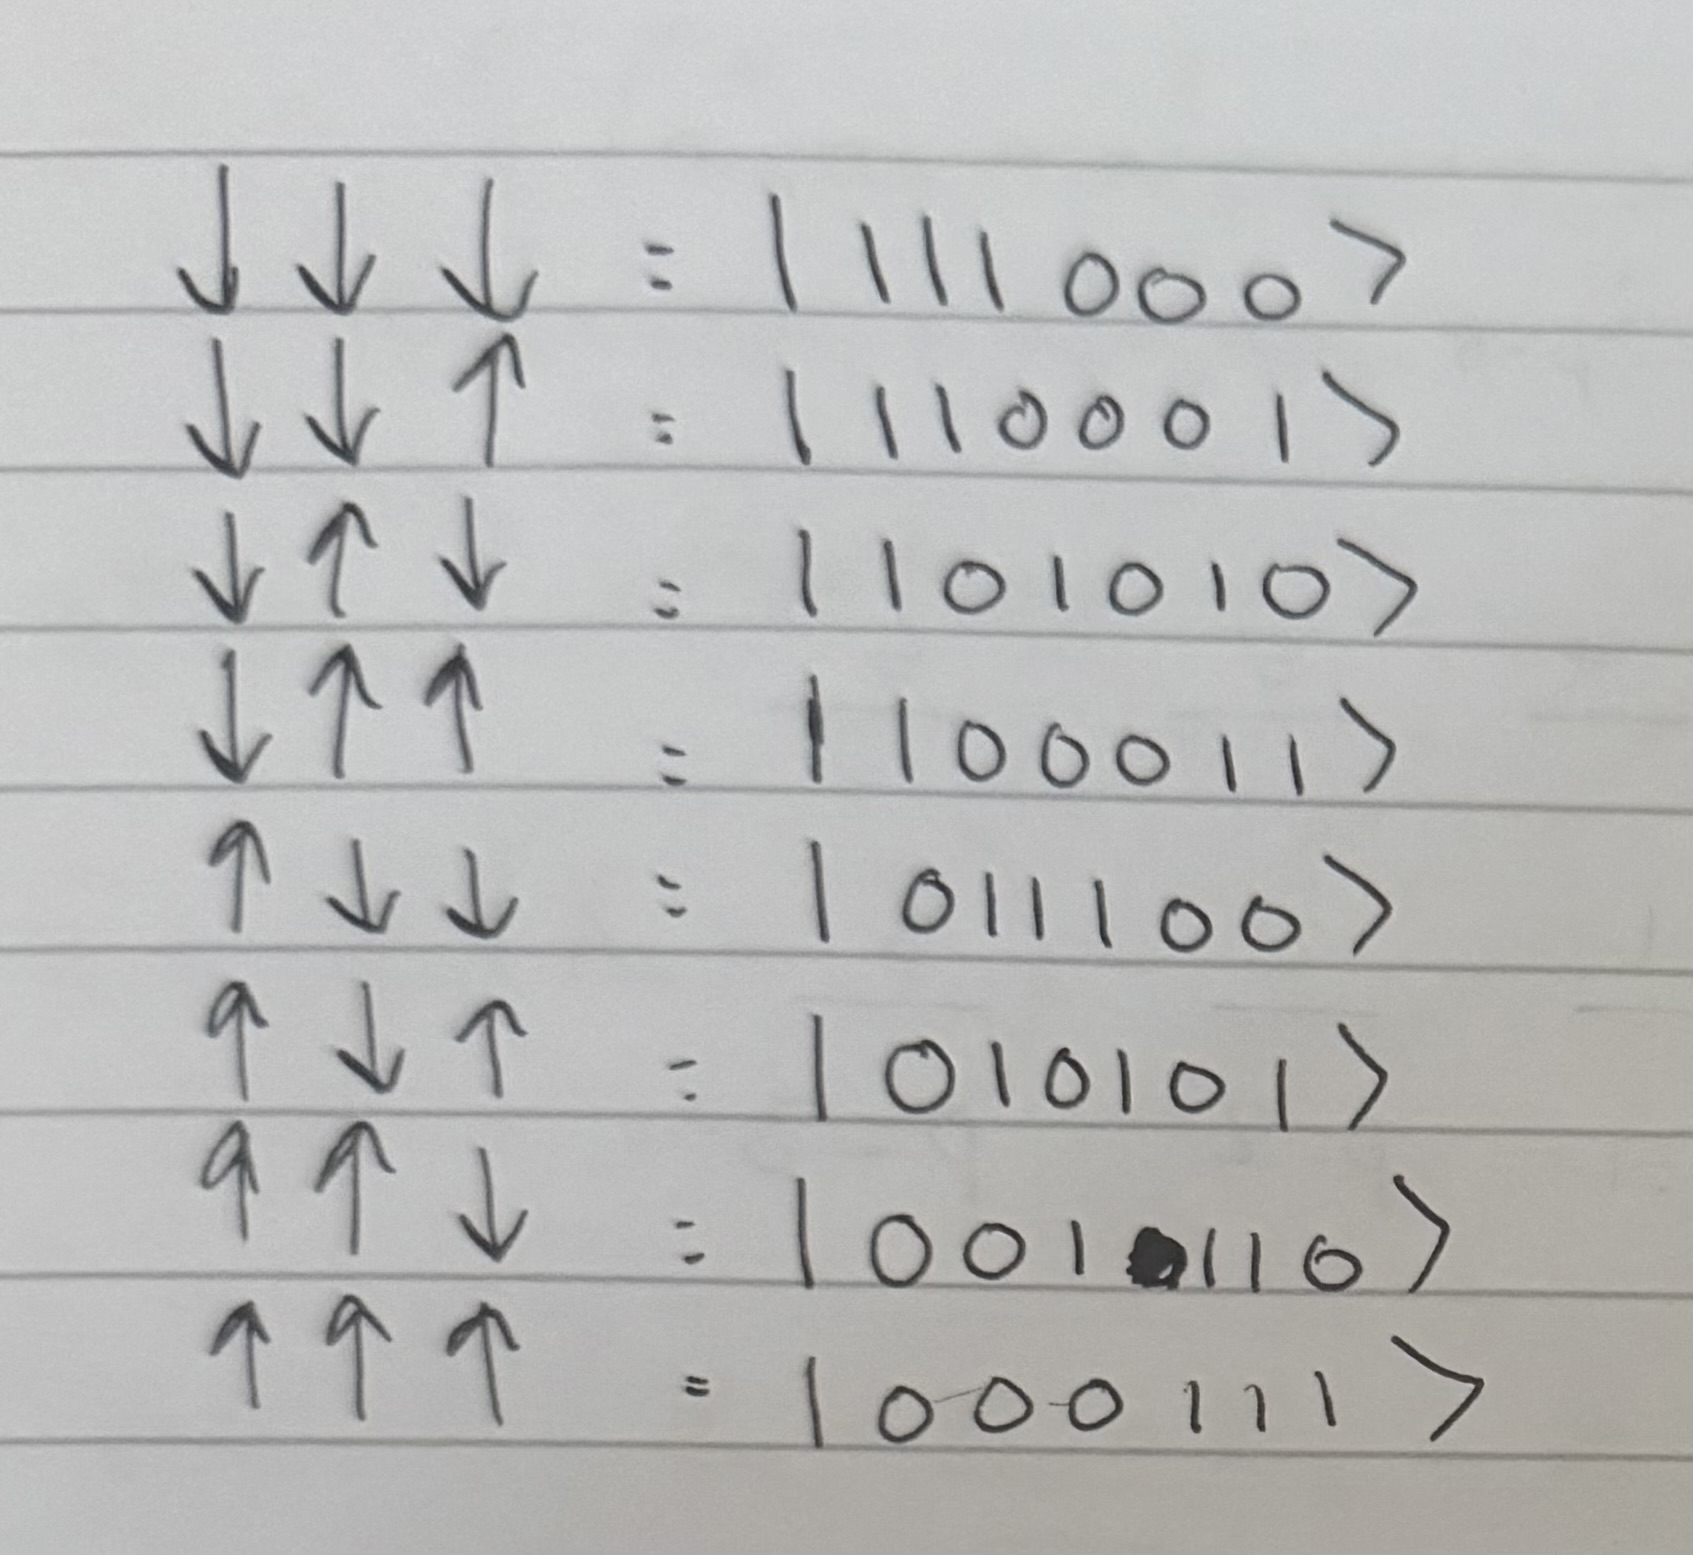 ↓ ↓ ↓ = |111000>
↓ ↓ ↑ = |110001>
↓ ↑ ↓ = |101010>
↓ ↑ ↑ = |100011>
↑ ↓ ↓ = |011100>
↑ ↓ ↑ = |010101>
↑ ↑ ↓ = |001110>
↑ ↑ ↑ = |000111>